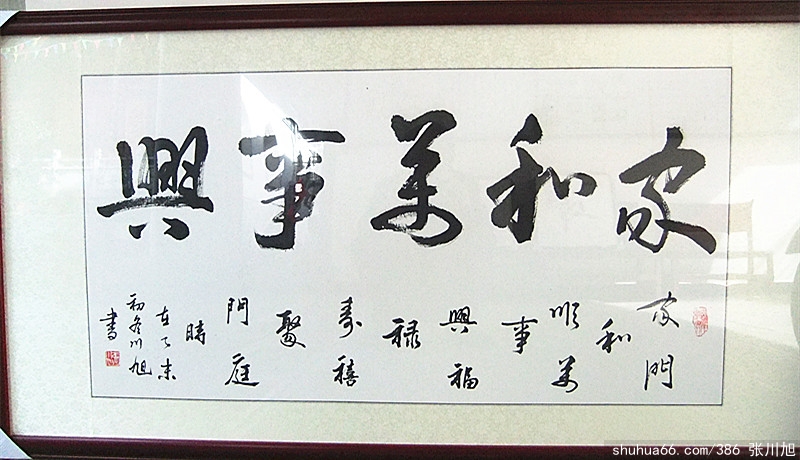 家和萬事興
家門
和
順萬
事
興福
禄
寿禧
聚
門庭
時
在乙未
初冬川旭
書
shuhua66.com/386 张川旭